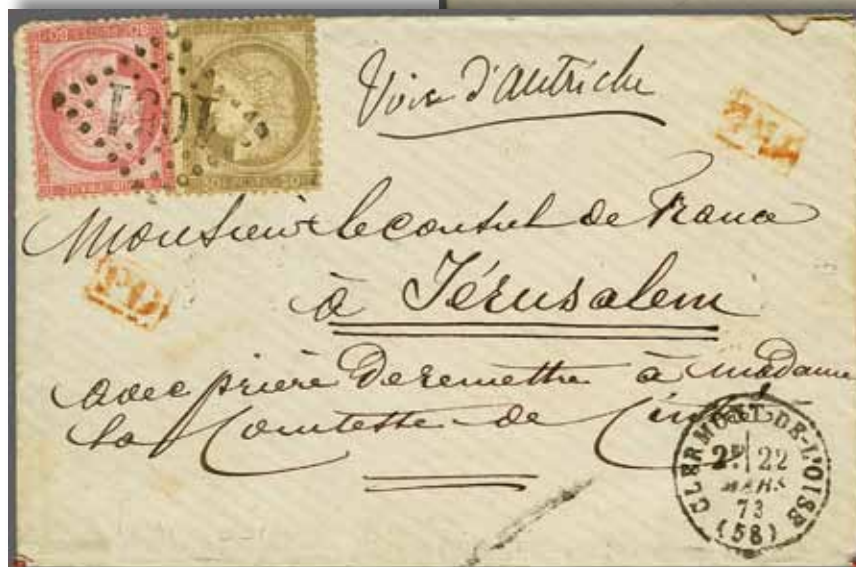 Voie d'autriche
1031
PD
Monsieur le consul de France
à Jérusalem
avec prière de remettre à madame
la Comtesse de
CLERMONT-DE-L'OISE
2E 22
MARS
73
(58)